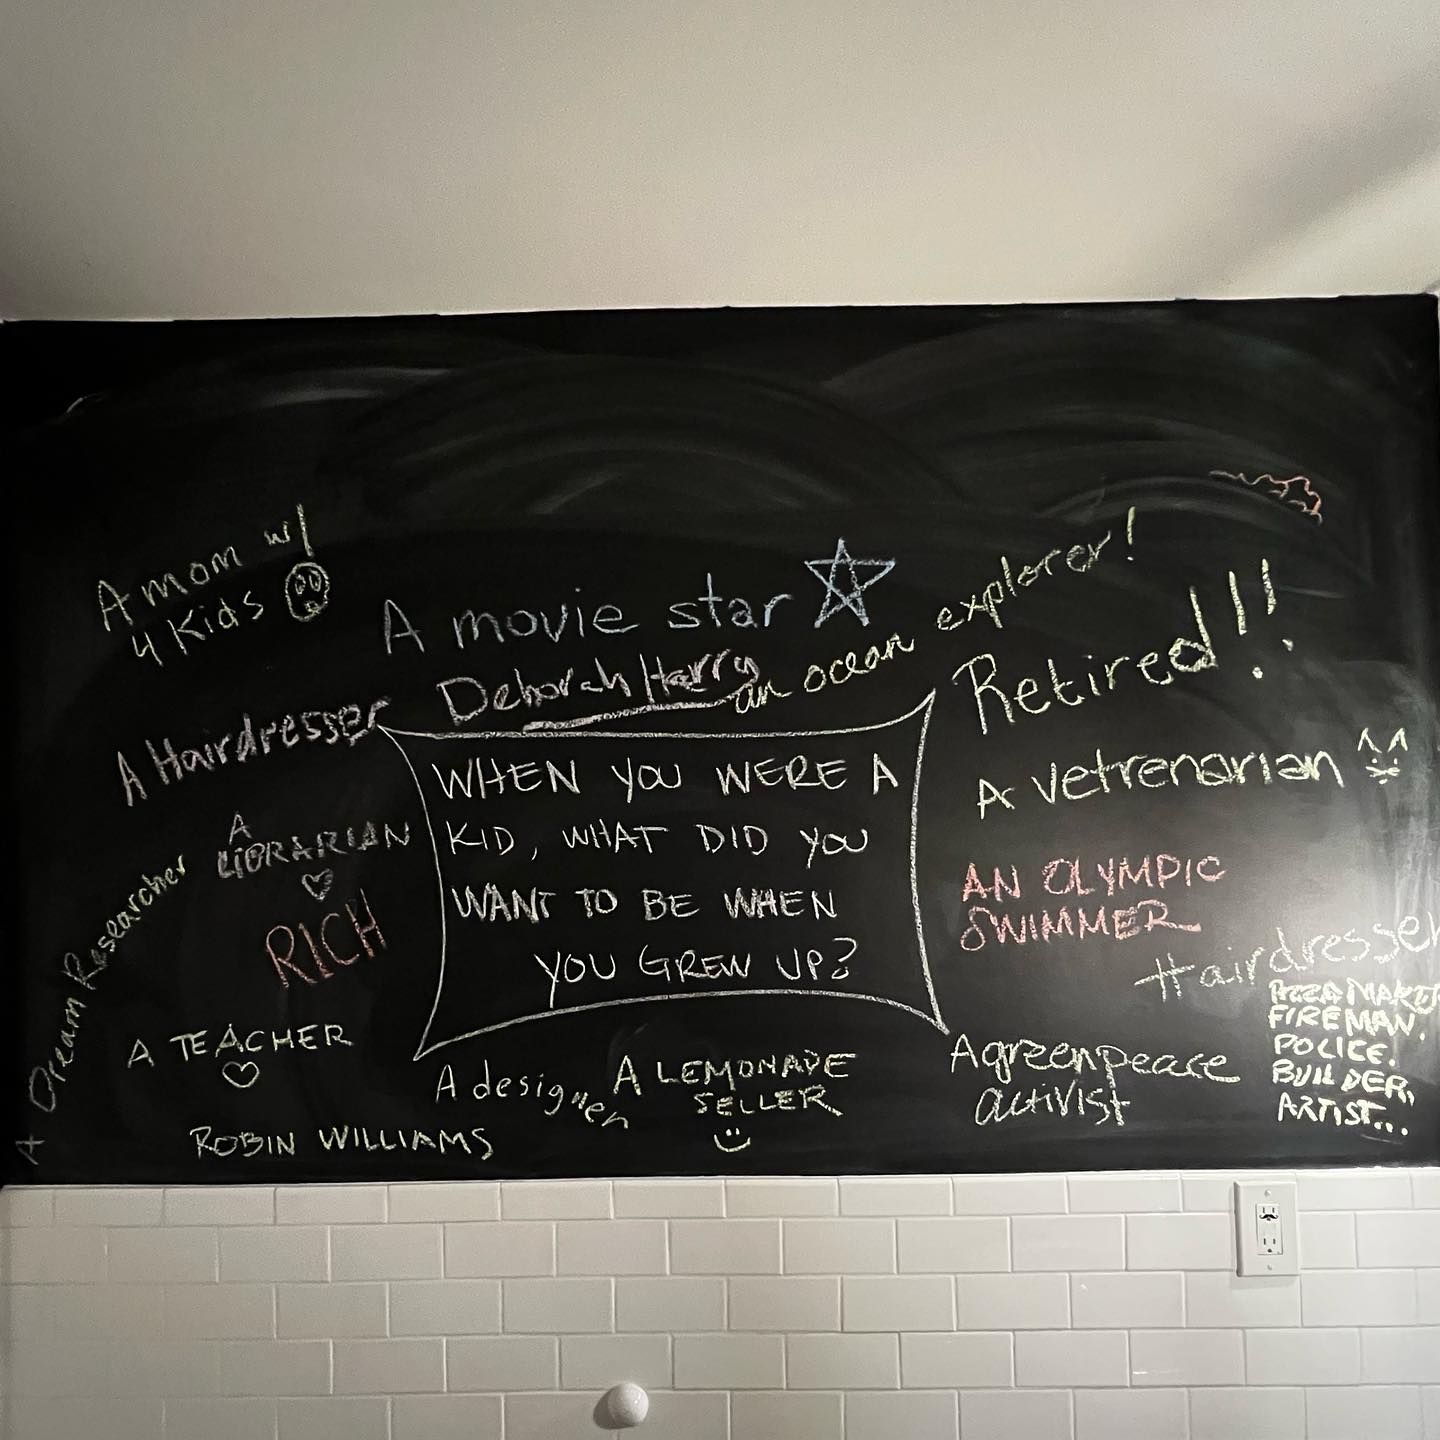 A mom w/
4 Kids
A movie star
Deborah Harry
an ocean explorer!
Retired!!
A Hairdresser
WHEN YOU WERE A
KID, WHAT DID YOU
WANT TO BE WHEN
YOU GREW UP?
A vetrenarian
A
LIBRARIAN
RICH
AN OLYMPIC
SWIMMER
A Dream Researcher
Hairdresser
PIZZA MAKER
FIREMAN,
POLICE.
BUILDER,
ARTIST...
A TEACHER
A designer
A LEMONADE
SELLER
A greenpeace
activist
ROBIN WILLIAMS